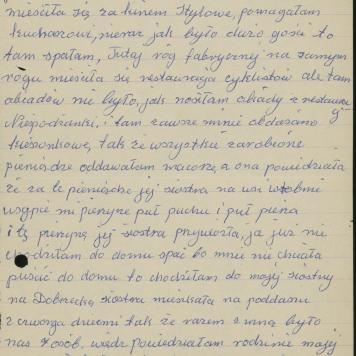 mieściła się za kinem Stylowe, pomagałam
kucharzowi, nieraz jak było dużo gości to
tam spałam, Tutaj róg fabrycznej na samym
rogu mieściła się restauracja cyklistów ale tam
obiadów nie było, jak nosiłam obiady z restauracji
i tam zawsze mnie obdarzano
kieszonkowe, tak że wszystkie zarobione
pieniądze oddawałam macosze, a ona powiedziała
że za te pieniądze jej siostra na wsi
wsypie mi pierzynę puł puchu i puł pierza
i tę pierzynę jej siostra przywiozła, ja już nie
chodziłam do domu spać bo mnie nie chciała
puścić do domu to chodziłam do mojej siostry
na Dobrecką siostra mieszkała na poddaszu
z czworga dziećmi tak że razem z mną było
nas 7 osób, więc powiedziałam rodzinie mojej